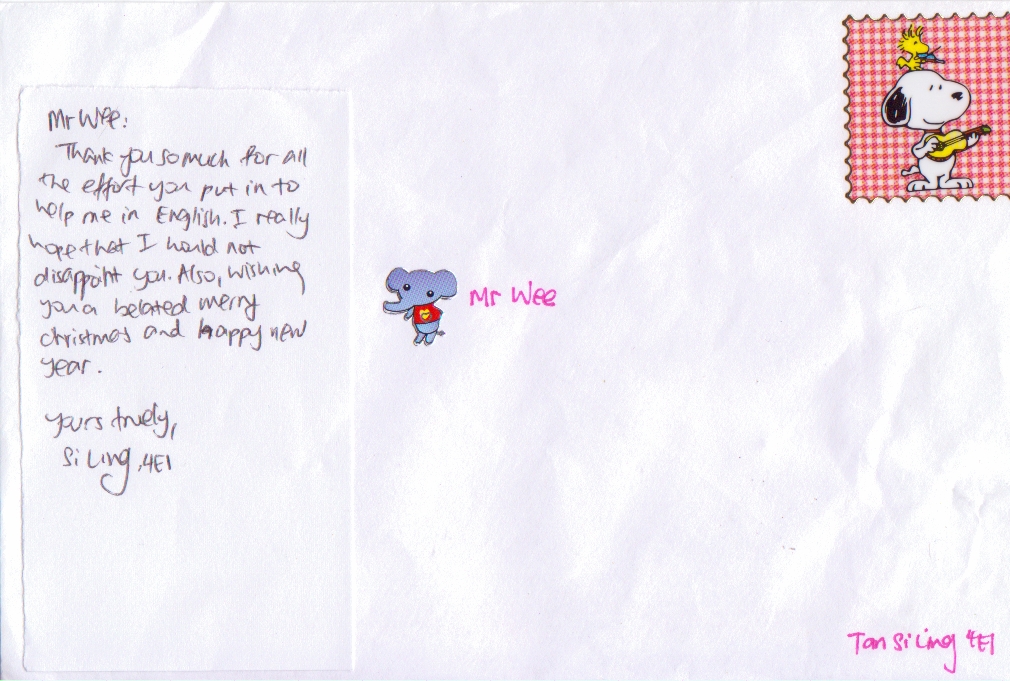 Mr Wee:
Thank you so much for all
the effort you put in to
help me in English. I really
hope that I would not
disappoint you. Also, wishing
you a belated merry
christmas and happy new
year.
yours truely,
Si Ling, 4E1
Mr Wee
Tan Si Ling 4E1